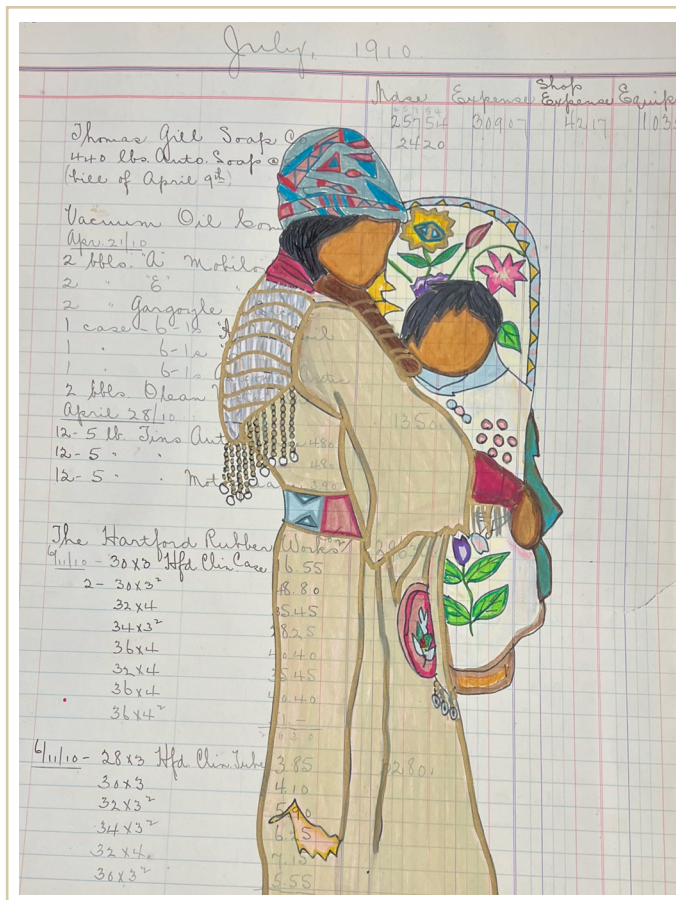 July, 1910
Mdse Expense Shop Expense Equip
25754 30907 4217 103
2420
Thomas Gill Soap Co
440 lbs. Auto. Soap @
(bill of April 9th)
Vacuum Oil Com
Apr. 21/10
2 bbls. "A" Mobilo
2 " "E"
2 " Gargoyle
1 case - 6-1s "A
1 " 6-1s
1 " 6-1s
2 bbls. Olean
April 28/10 1350
12-5 lb. Tins Aut 480
12-5 " " 48
12-5 " " Mot 390
The Hartford Rubber Works
6/11/10 - 30x3 Hfd Clin Case 16.55
2 - 30x3² 48.80
32x4 35.45
34x3² 3825
36x4 40.40
32x4 35.45
36x4 40.40
36x4²
6/11/10 - 28x3 Hfd. Clin. Tube 3.85 3280
30x3 4.10
32x3²
34x3² 6.25
32x4 7.15
30x3² 5.55